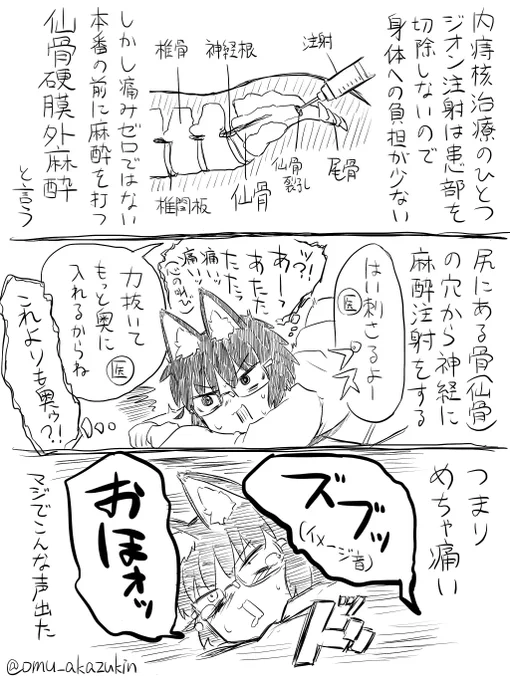 内痔核治療のひとつ
ジオン注射は患部を
切除しないので
身体への負担が少ない
注射
神経根
椎骨
尾骨
仙骨
裂孔
仙骨
椎間板
しかし痛みゼロではない
本番の前に麻酔を打つ
仙骨硬膜外麻酔
と言う
尻にある骨(仙骨)
の穴から神経に
麻酔注射をする
はい刺さるよー
医
プス
ッ?!
あーっ
あたた
たたっ
痛い
痛い
力抜いて
もっと奥に
入れるからね
医
これよりも奥ゥ?!
つまり
めちゃ痛い
ズブッ
(イメージ音)
ド
おほォッ
マジでこんな声出た
@omu_akazukin